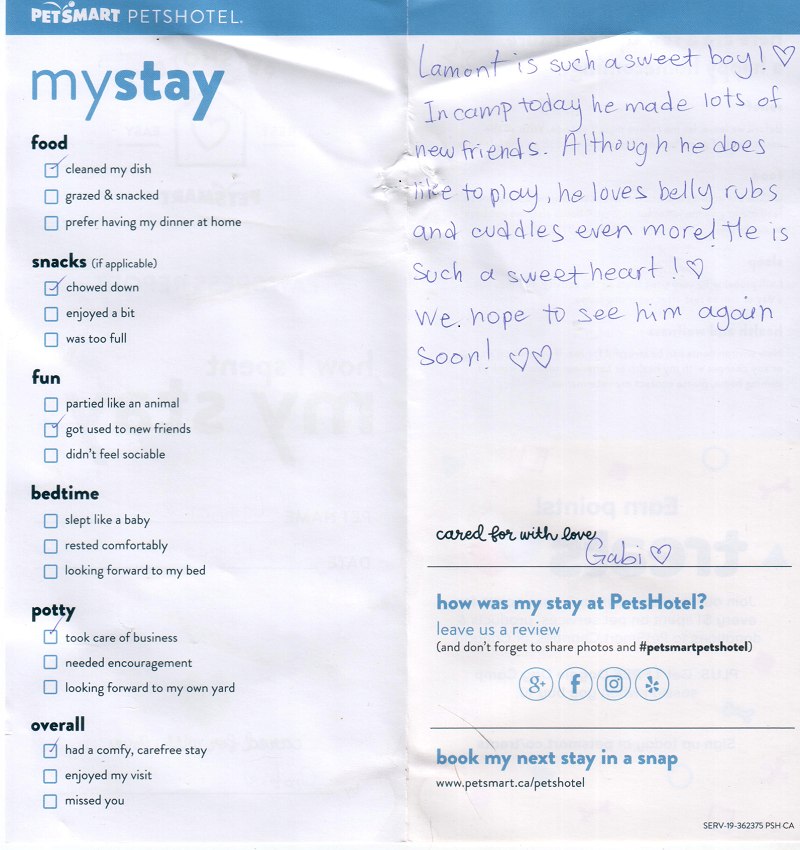 PETSMART PETSHOTEL.
mystay
food
cleaned my dish
grazed & snacked
prefer having my dinner at home
snacks (if applicable)
chowed down
enjoyed a bit
was too full
fun
partied like an animal
got used to new friends
didn't feel sociable
bedtime
slept like a baby
rested comfortably
looking forward to my bed
potty
took care of business
needed encouragement
looking forward to my own yard
overall
had a comfy, carefree stay
enjoyed my visit
missed you
Lamont is such a sweet boy! ♡
In camp today he made lots of
new friends. Although he does
like to play, he loves belly rubs
and cuddles even more! He is
such a sweetheart! ♡
We hope to see him again
soon! ♡♡
cared for with love
Gabi ♡
how was my stay at PetsHotel?
leave us a review
(and don't forget to share photos and #petsmartpetshotel)
g+ f
book my next stay in a snap
www.petsmart.ca/petshotel
SERV-19-362375 PSH CA